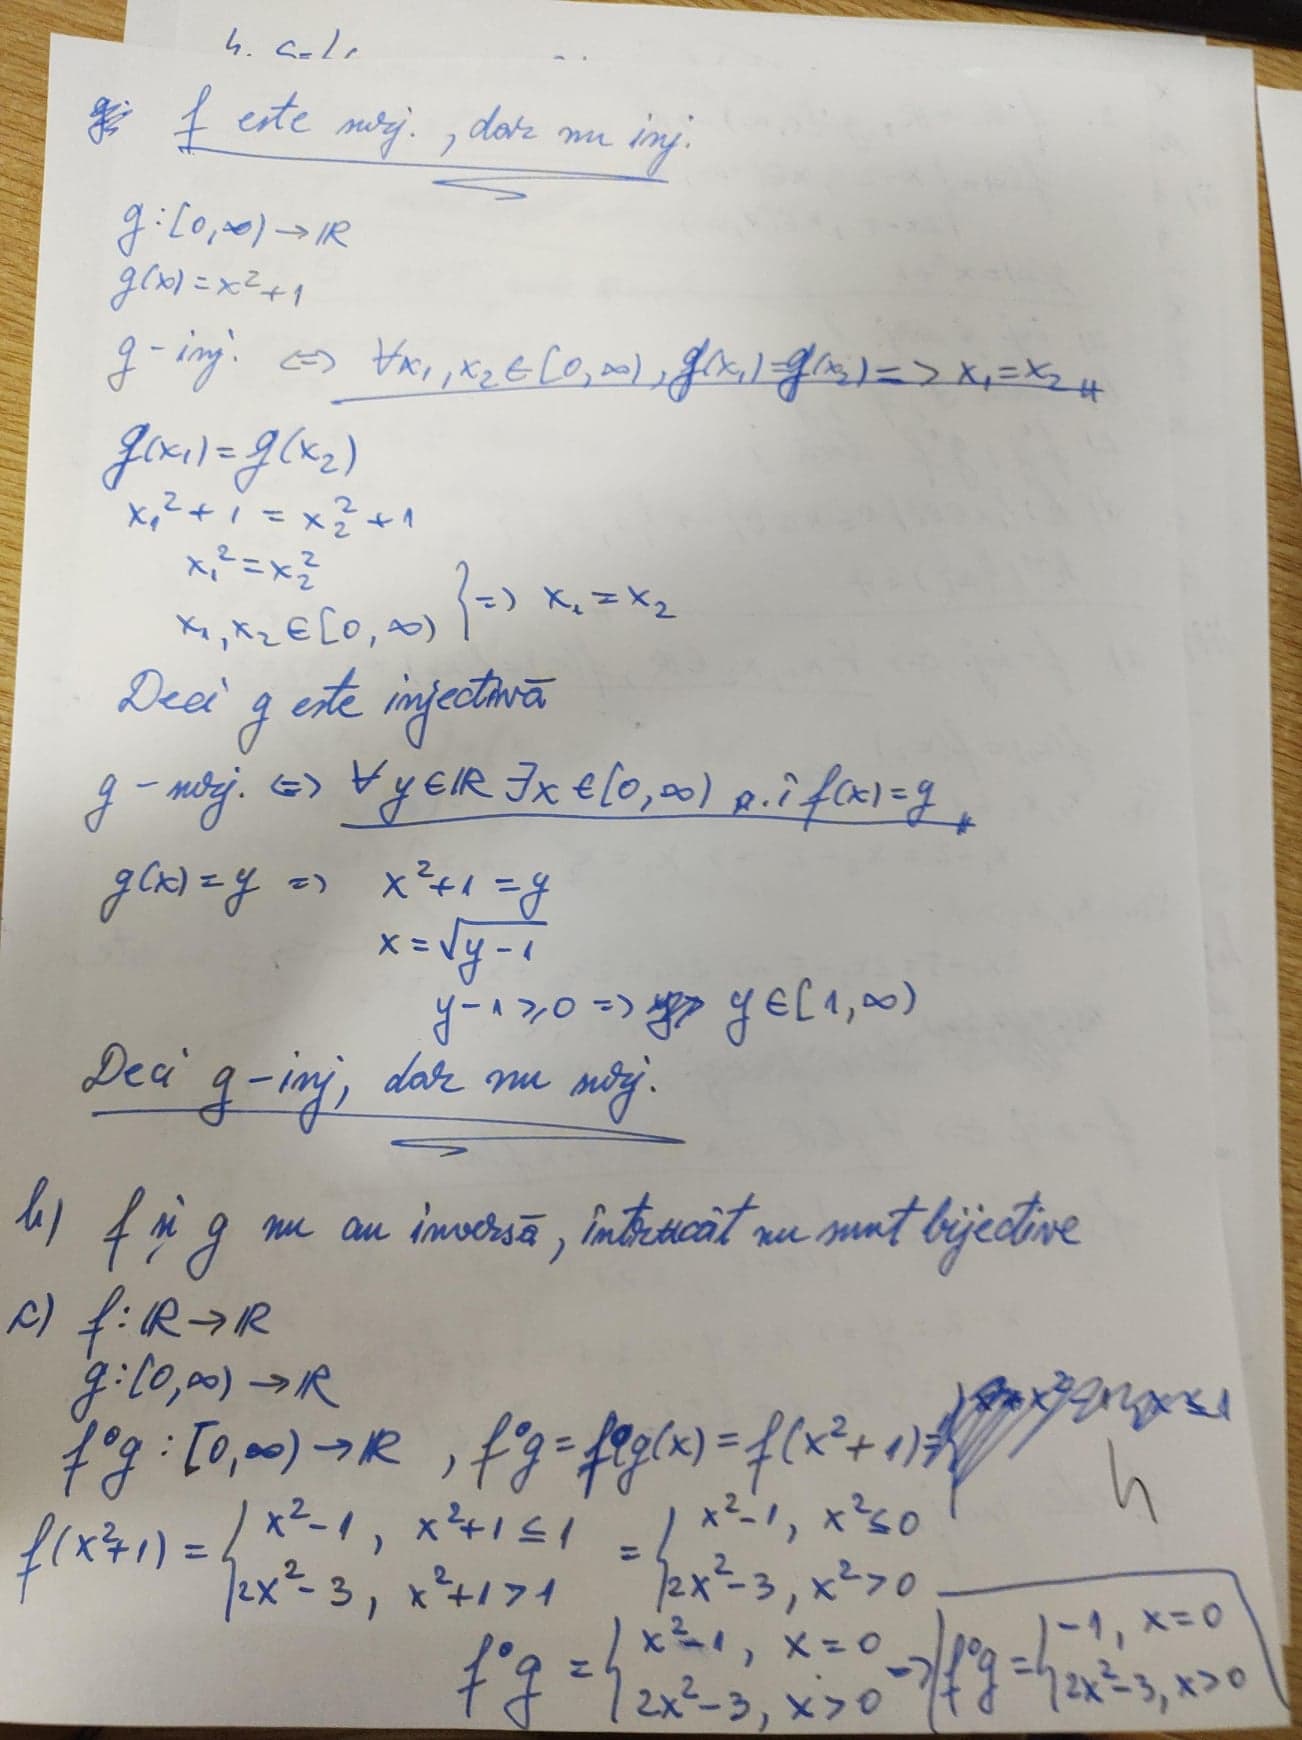 f este surj., dar nu inj.
g:[0,∞)→ℝ
g(x)=x²+1
g-inj. <=> ∀x₁,x₂∈[0,∞),g(x₁)=g(x₂)=>x₁=x₂
g(x₁)=g(x₂)
x₁²+1=x₂²+1
x₁²=x₂²
x₁,x₂∈[0,∞) }=> x₁=x₂
Deci g este injectivă
g-surj. <=> ∀y∈ℝ ∃x∈[0,∞) a.î f(x)=y
g(x)=y => x²+1=y
x=√(y-1)
y-1≥0 => y∈[1,∞)
Deci g-inj, dar nu surj.
b) f și g nu au inversă, întrucât nu sunt bijective
c) f:ℝ→ℝ
g:[0,∞)→ℝ
f∘g:[0,∞)→ℝ, f∘g=f(g(x))=f(x²+1)=
f(x²+1)={x²-1, x²+1≤1 ={x²-1, x²≤0
2x²-3, x²+1>1 2x²-3, x²>0
f∘g={x²-1, x=0 => f∘g={-1, x=0
2x²-3, x>0 2x²-3, x>0